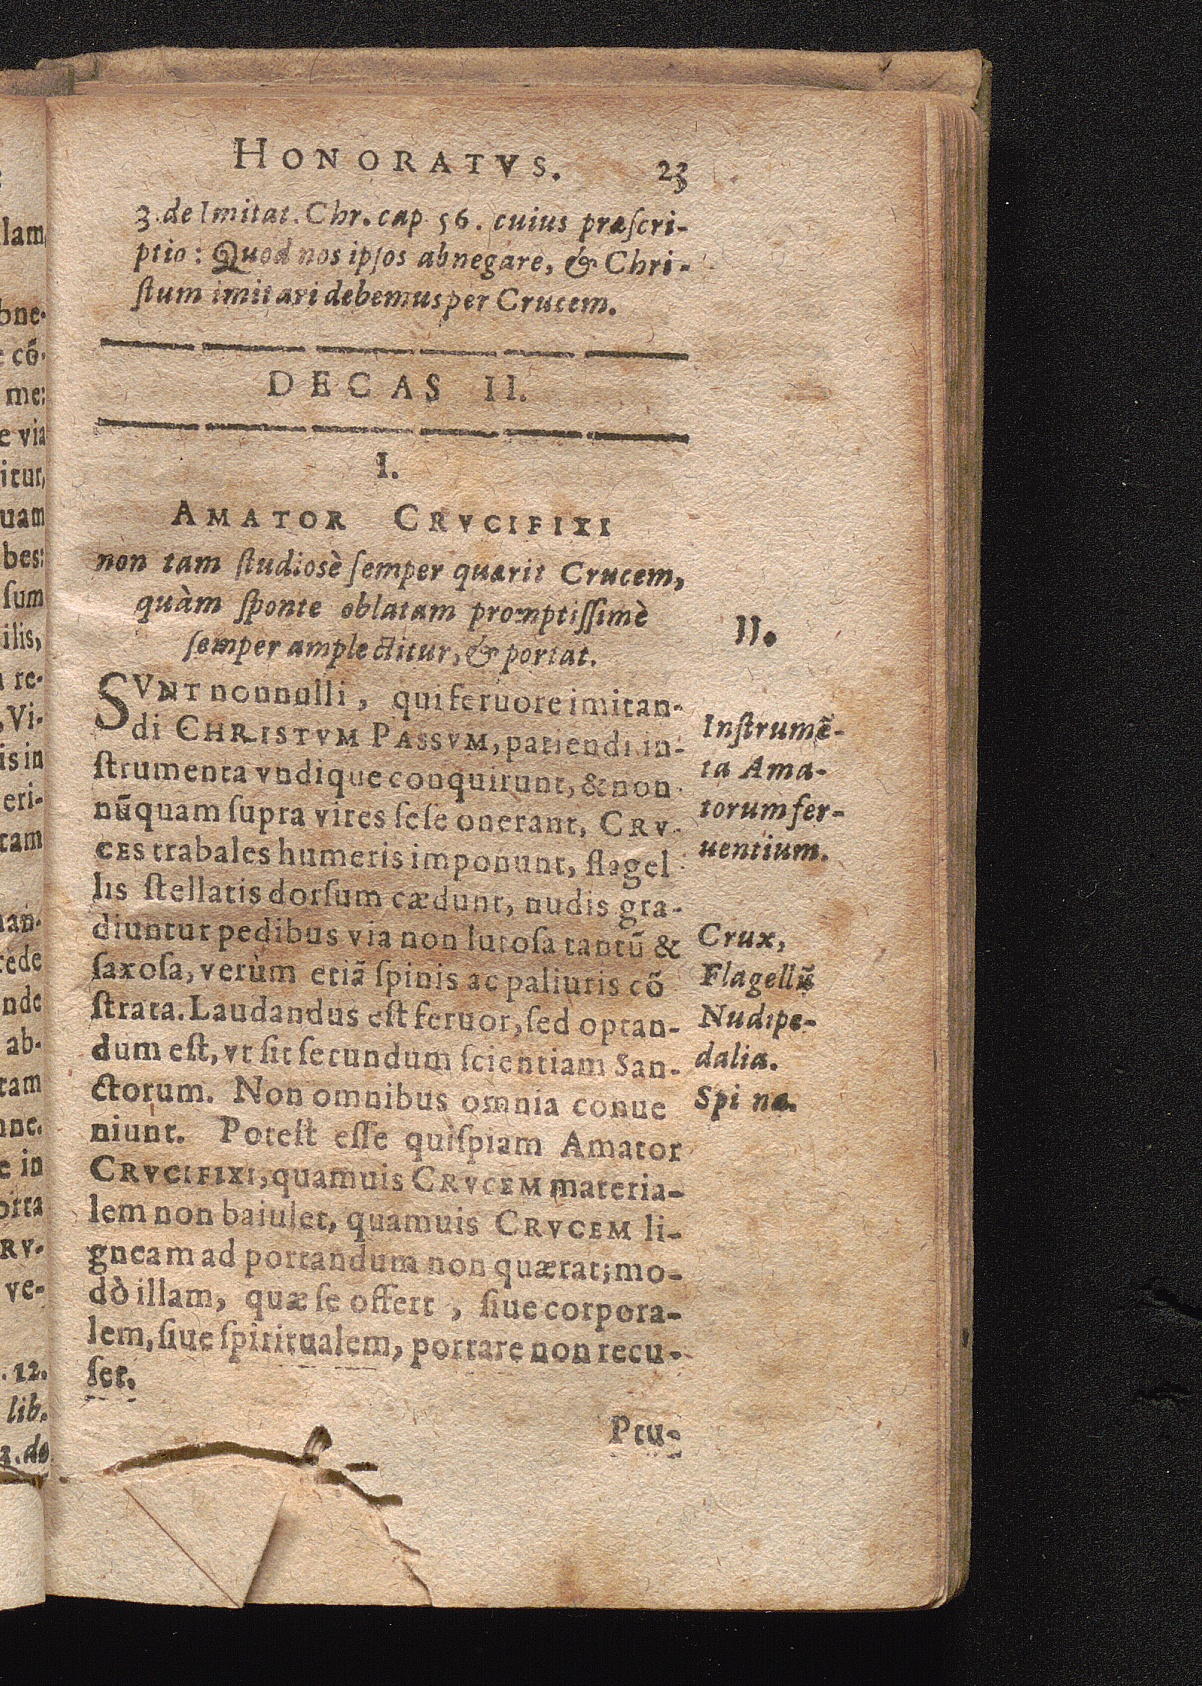 HONORATVS. 23
3. de Imitat. Chr. cap 56. cuius præſcri-
ptio: Quod nos ipſos abnegare, & Chri-
ſtum imitari debemus per Crucem.
DECAS II.
I.
AMATOR CRVCIFIXI
non tam ſtudiosè ſemper quærit Crucem,
quàm ſponte oblatam promptiſſimè
ſemper amplectitur, & portat.
SVNT nonnulli, qui feruore imitan-
di CHRISTVM PASSVM, patiendi in-
ſtrumenta vndique conquirunt, & non
nũquam ſupra vires ſeſe onerant, CRV-
CES trabales humeris imponunt, flagel
lis ſtellatis dorſum cædunt, nudis gra-
diuntur pedibus via non lutoſa tantũ &
ſaxoſa, verùm etiã ſpinis ac paliuris cõ
ſtrata. Laudandus eſt feruor, ſed optan-
dum eſt, vt ſit ſecundum ſcientiam San-
ctorum. Non omnibus omnia conue
niunt. Poteſt eſſe quiſpiam Amator
CRVCIFIXI, quamuis CRVCEM materia-
lem non baiulet, quamuis CRVCEM li-
gneam ad portandum non quærat; mo-
dò illam, quæ ſe offert, ſiue corpora-
lem, ſiue ſpiritualem, portare non recu-
ſet.
Ptu-
II.
Inſtrumẽ-
ta Ama-
torum fer-
uentium.
Crux,
Flagellũ
Nudipe-
dalia.
Spi næ.
lam,
bne-
e cõ-
me:
e via
itur,
uam
bes:
ſum
ilis,
n re-
, Vi-
is in
eri-
tam
nan-
cẽde
nde
ab-
tam
nne.
e in
orta
RV-
ve-
. 12.
lib.
3. de